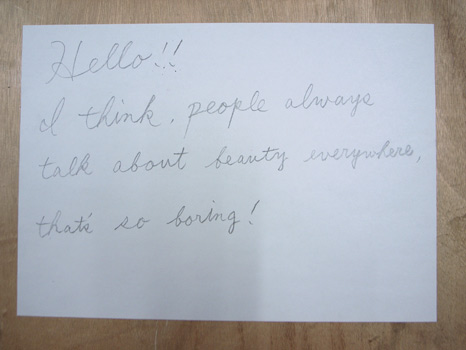 Hello!!
I think, people always
talk about beauty everywhere,
that's so boring!